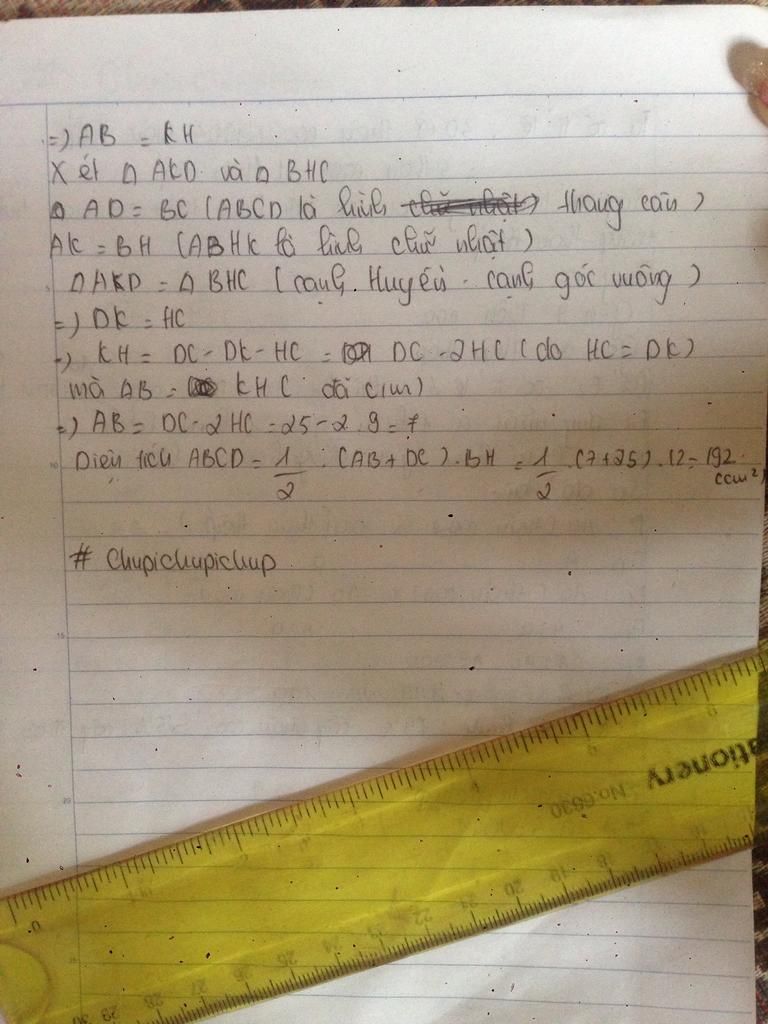 =) AB = KH
Xét Δ AKD và Δ BHC
Δ AD = BC (ABCD là hình thang cân)
AK = BH (ABHK là hình chữ nhật)
Δ AKD = Δ BHC (cạnh Huyền - cạnh góc vuông)
=) DK = HC
=) KH = DC - DK - HC = DC - 2HC (do HC = DK)
mà AB = KH ( đã c/m)
=) AB = DC - 2HC = 25 - 2.9 = 7
Diện tích ABCD = 1/2 . (AB + DC) . BH = 1/2 . (7+25) . 12 = 192
(cm²)
# Chupichupichup
ationery
No.6630